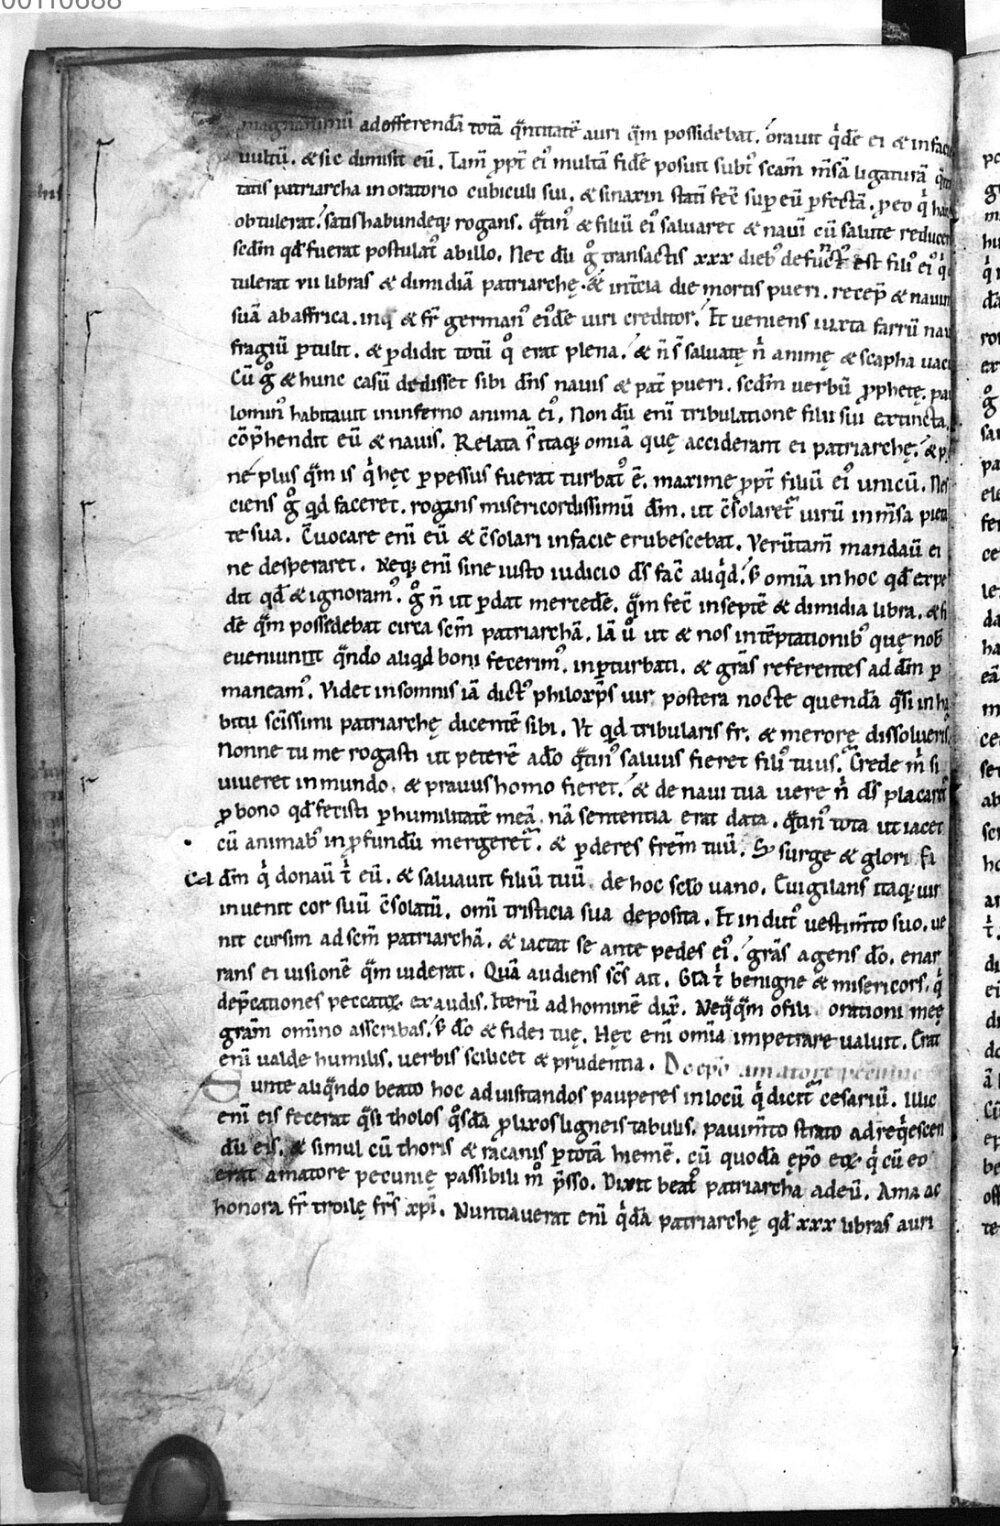 00110688
magnanimū ad offerendā totā q̄ntitatē auri q̄m possidebat. orauit q̇dē ei & in faciē
uultū. & sic dimisit eū. Tam̄ ꝓpt̄ eiꝰ multā fidē posuit subtꝰ scam̄ m̄sā ligaturā
tatis patriarcha in oratorio cubiculi sui. & sinaxin statī fec̄ sup eū ꝑfectā. ꝓ eo q̇
obtulerat. satis habundeq; rogans. q̄tinꝰ & filiū eiꝰ saluaret & nauī cū salute reducer
scdm̄ qđ fuerat postulatꝰ ab illo. Nec dū g̊ transactis xxx diebꝰ defunctꝰ est filiꝰ eiꝰ q̇
tulerat vii libras & dimidiā patriarchę. & in t̄cia die mortis pueri. recep̄ & nauim
suā ab affrica. inq̇ & fr̄ germanꝰ eiꝰdē uiri creditor. Et ueniens iuxta farrū nau
fragiū ꝑtulit. & ꝑdidit totū q̊ erat plena. & n̄ s̄t saluatę n̄ animę & scapha uac
Cū g̊ & hunc casū dedisset sibi dn̄s nauis & pat̄ pueri. scdm̄ uerbū ꝓphetę. pau
lominꝰ habitauit in inferno anima eiꝰ. Non dū enī tribulatione filii sui extincta.
cōp̄hendit eū & nauis. Relata s̄ itaq; om̄ia quę acciderant ei patriarchę. & p
ne plus q̄m is q̇ hęc ꝑpessus fuerat turbatꝰ ē. maxime ꝓpt̄ filiū eiꝰ unicū. Nes
ciens g̊ qd faceret. rogans misericordissimū dm̄. ut c̄solaretᷣ uirū in m̄sa pieta
te sua. Euocare enī eū & c̄solari in facie erubescebat. Verūtam̄ mandauit ei
ne desperaret. Neq; enī sine iusto iudicio ds̄ fac̄ aliq̇d. s; om̄ia in hoc qđ expe
dit qđ & ignoramꝰ. g̊ n̄ ut ꝑdat mercedē. q̄m fec̄ in septē & dimidia libra. & fi
dē q̄m possidebat circa scm̄ patriarchā. Iā ů ut & nos in tēptationibꝰ quę nob
eueniunt q̄ndo aliqd boni fecerimꝰ. inpturbati. & grās referentes ad dm̄ p
maneamꝰ. Videt in somnis iā dictꝰ philoxp̄s uir postera nocte quendā q̄si in ha
bitu scīssimi patriarchę dicentē sibi. Vt qd tribularis fr̄. & merore dissolueris.
Nonne tu me rogasti ut peterē a do q̄tinꝰ saluus fieret filiꝰ tuus. Crede m̄ si
uiueret in mundo. & prauus homo fieret. & de naui tua uere n̄ ds̄ placat
ꝓ bono qđ fecisti ꝑ humilitatē meā. nā sententia erat data. q̄tinꝰ tota ut iacet
cū animabꝰ in ꝓfundū mergeretᷣ. & ꝑderes frem̄ tuū. S; surge & glorifi
ca dm̄ q̇ donauit t̄ eū. & saluauit filiū tuū. de hoc scl̄o uano. Euigilans itaq; uir
inuenit cor suū c̄solatū. om̄i tristicia sua deposita. Et indutꝰ uestim̄to suo. ue
nit cursim ad scm̄ patriarchā. & iactat se ante pedes eiꝰ. grās agens do. enar
rans ei uisionē q̄m uiderat. Quā audiens scs̄ ait. Gl̄a t̄ benigne & misericors. q̇
dep̄cationes peccatoꝝ exaudis. Iterū ad hominē dix̄. Neq̄q̄m o fili orationi meę
grām omīno asscribas. s; do & fidei tuę. Hęc enī om̄ia impetrare ualuit. Erat
enī ualde humilis. uerbis scilicet & prudentia. De ep̄o amatore pecunię
Eunte aliq̄ndo beato hoc ad uisitandos pauperes in locū q̇ dicitᷣ cesariū. Illic
enī eis fecerat q̄si tholos q̊sdā ꝓlixos ligneis tabulis. pauim̄to strato ad req̇escen
dū eis. & simul cū thoris & racanis ꝑ totā hiemē. cū quodā ep̄o q̇ cū eo
erat amatore pecunię passibili m̊ p̄sso. Dixit beatꝰ patriarcha ad eū. Ama &
honora fr̄ troile fr̄s xp̄i. Nuntiauerat enī q̇dā patriarchę qđ xxx libras auri